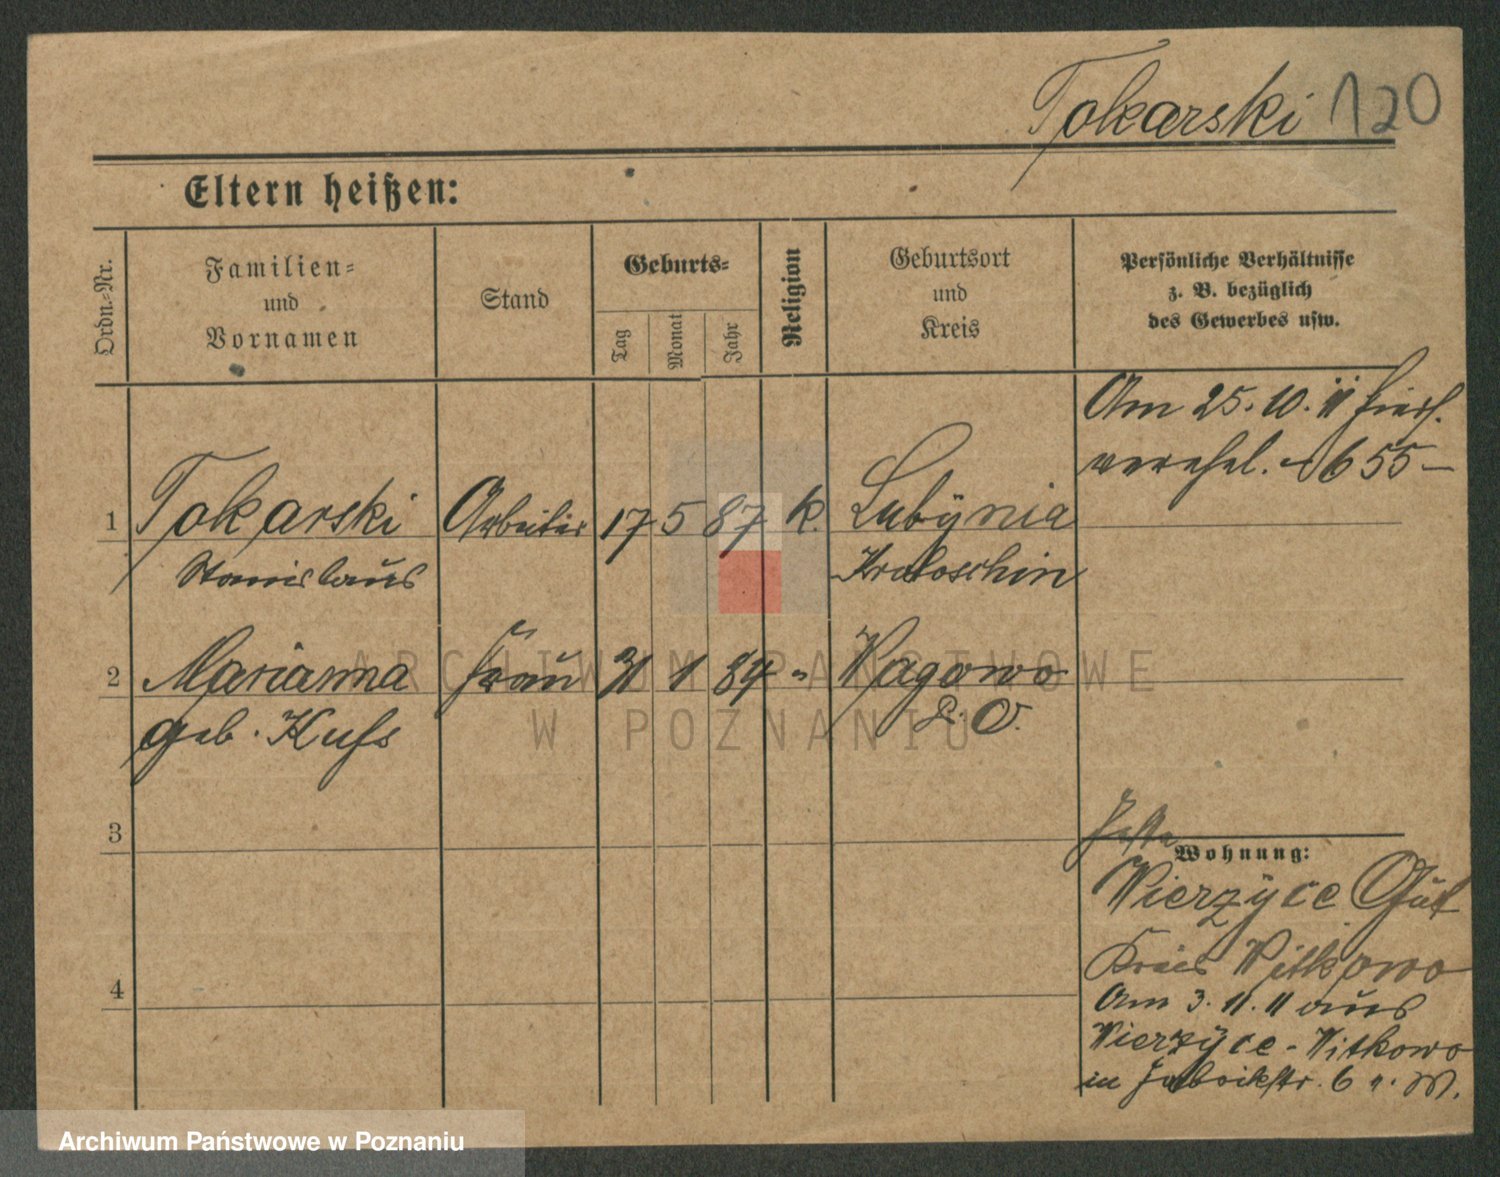 Tokarski 120
Eltern heißen:
Ordn.-Nr.
Familien-
und
Vornamen
Stand
Geburts-
Tag
Monat
Jahr
Religion
Geburtsort
und
Kreis
Persönliche Verhältnisse
z. B. bezüglich
des Gewerbes usw.
Am 25. 10. 11 hiers.
verehel. 655 –
1 Tokarski Arbeiter 17 5 87 K. Lubÿnia
Stanislaus Krotoschin
2 Marianna Frau 31 1 84 " Wagowo
geb. Kuss P. O.
3
Wohnung:
Wierzÿce Gut
Kreis Witkowo
4
Am 3. 11. 11 aus
Wierzÿce - Witkowo
in Fabrikstr. 6 W.
ARCHIWUM PAŃSTWOWE
W POZNANIU
Archiwum Państwowe w Poznaniu